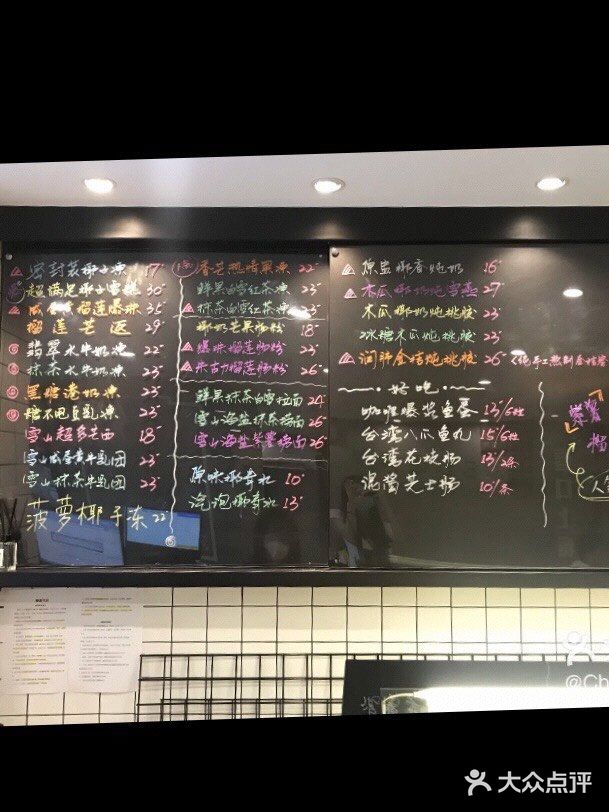 密封装椰子冻 17
超满足椰子雪糕 30
榴莲爆珠 35
榴莲芒返 29
翡翠水牛奶冻 22
抹茶水牛奶冻 23
黑糖滝奶冻 22
糖不甩豆乳冻 22
雪山超多芒西 18
雪山咸蛋黄牛乳团 23
雪山抹茶牛乳团 23
菠萝椰子冻 22
香芒热情果冻 22
鲜果白雪红茶冻 23
抹茶白雪红茶冻 23
椰奶芒果肠粉 18
爆珠榴莲肠粉 25
朱古力榴莲肠粉 26
鲜果抹茶白雪拉面 24
雪山海盐抹茶捞面 26
雪山海盐紫薯捞面 26
原味椰青水 10
泡泡椰青水 13
原盅椰香炖奶 16
木瓜椰奶炖雪燕 27
木瓜椰奶炖桃胶
冰糖木瓜炖桃胶
润肺金桔炖桃胶 26
好吃
咖喱爆浆鱼蛋 13/6粒
台湾八爪鱼丸 15/6粒
台湾花枝肠 13/2条
混酱芝士肠 10/条
紫薯
榴
大众点评